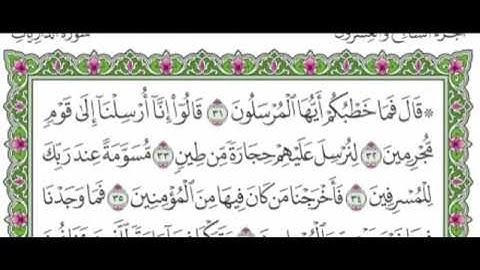 الجزء السابع والعشرون سورة الذاريات
۞ قَالَ فَمَا خَطْبُكُمْ أَيُّهَا الْمُرْسَلُونَ ٣١ قَالُوا إِنَّا أُرْسِلْنَا إِلَىٰ قَوْمٍ
مُّجْرِمِينَ ٣٢ لِنُرْسِلَ عَلَيْهِمْ حِجَارَةً مِّن طِينٍ ٣٣ مُّسَوَّمَةً عِندَ رَبِّكَ
لِلْمُسْرِفِينَ ٣٤ فَأَخْرَجْنَا مَن كَانَ فِيهَا مِنَ الْمُؤْمِنِينَ ٣٥ فَمَا وَجَدْنَا